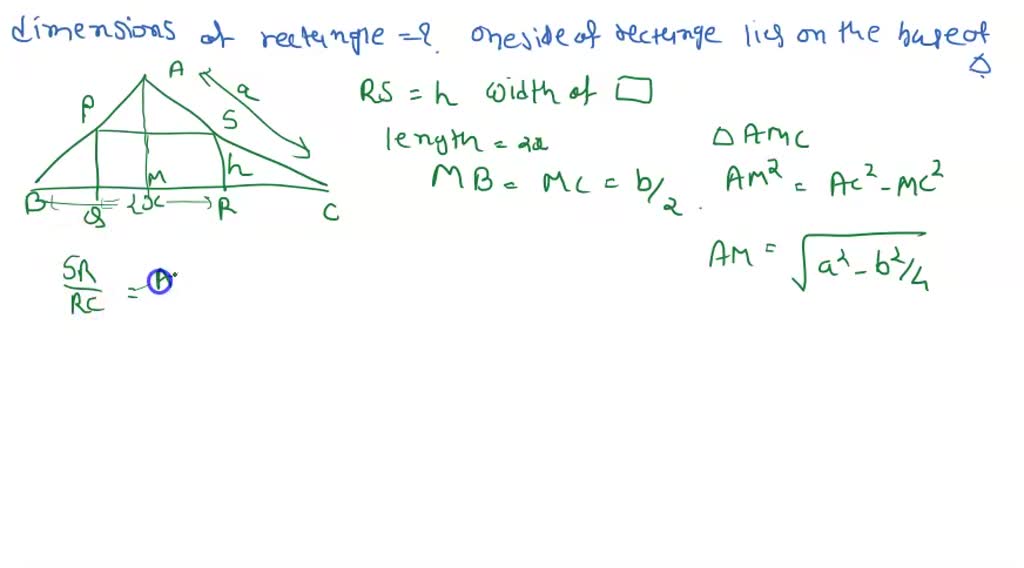 dimensions of rectangle = ? one side of rectange lies on the base of Δ
A
a
P
S
h
M
B
Q
2x
R
C
RS = h width of □
length = 2x
MB = MC = b/2.
Δ AMC
AM² = AC² - MC²
AM = √a² - b²/4
SR/RC = A